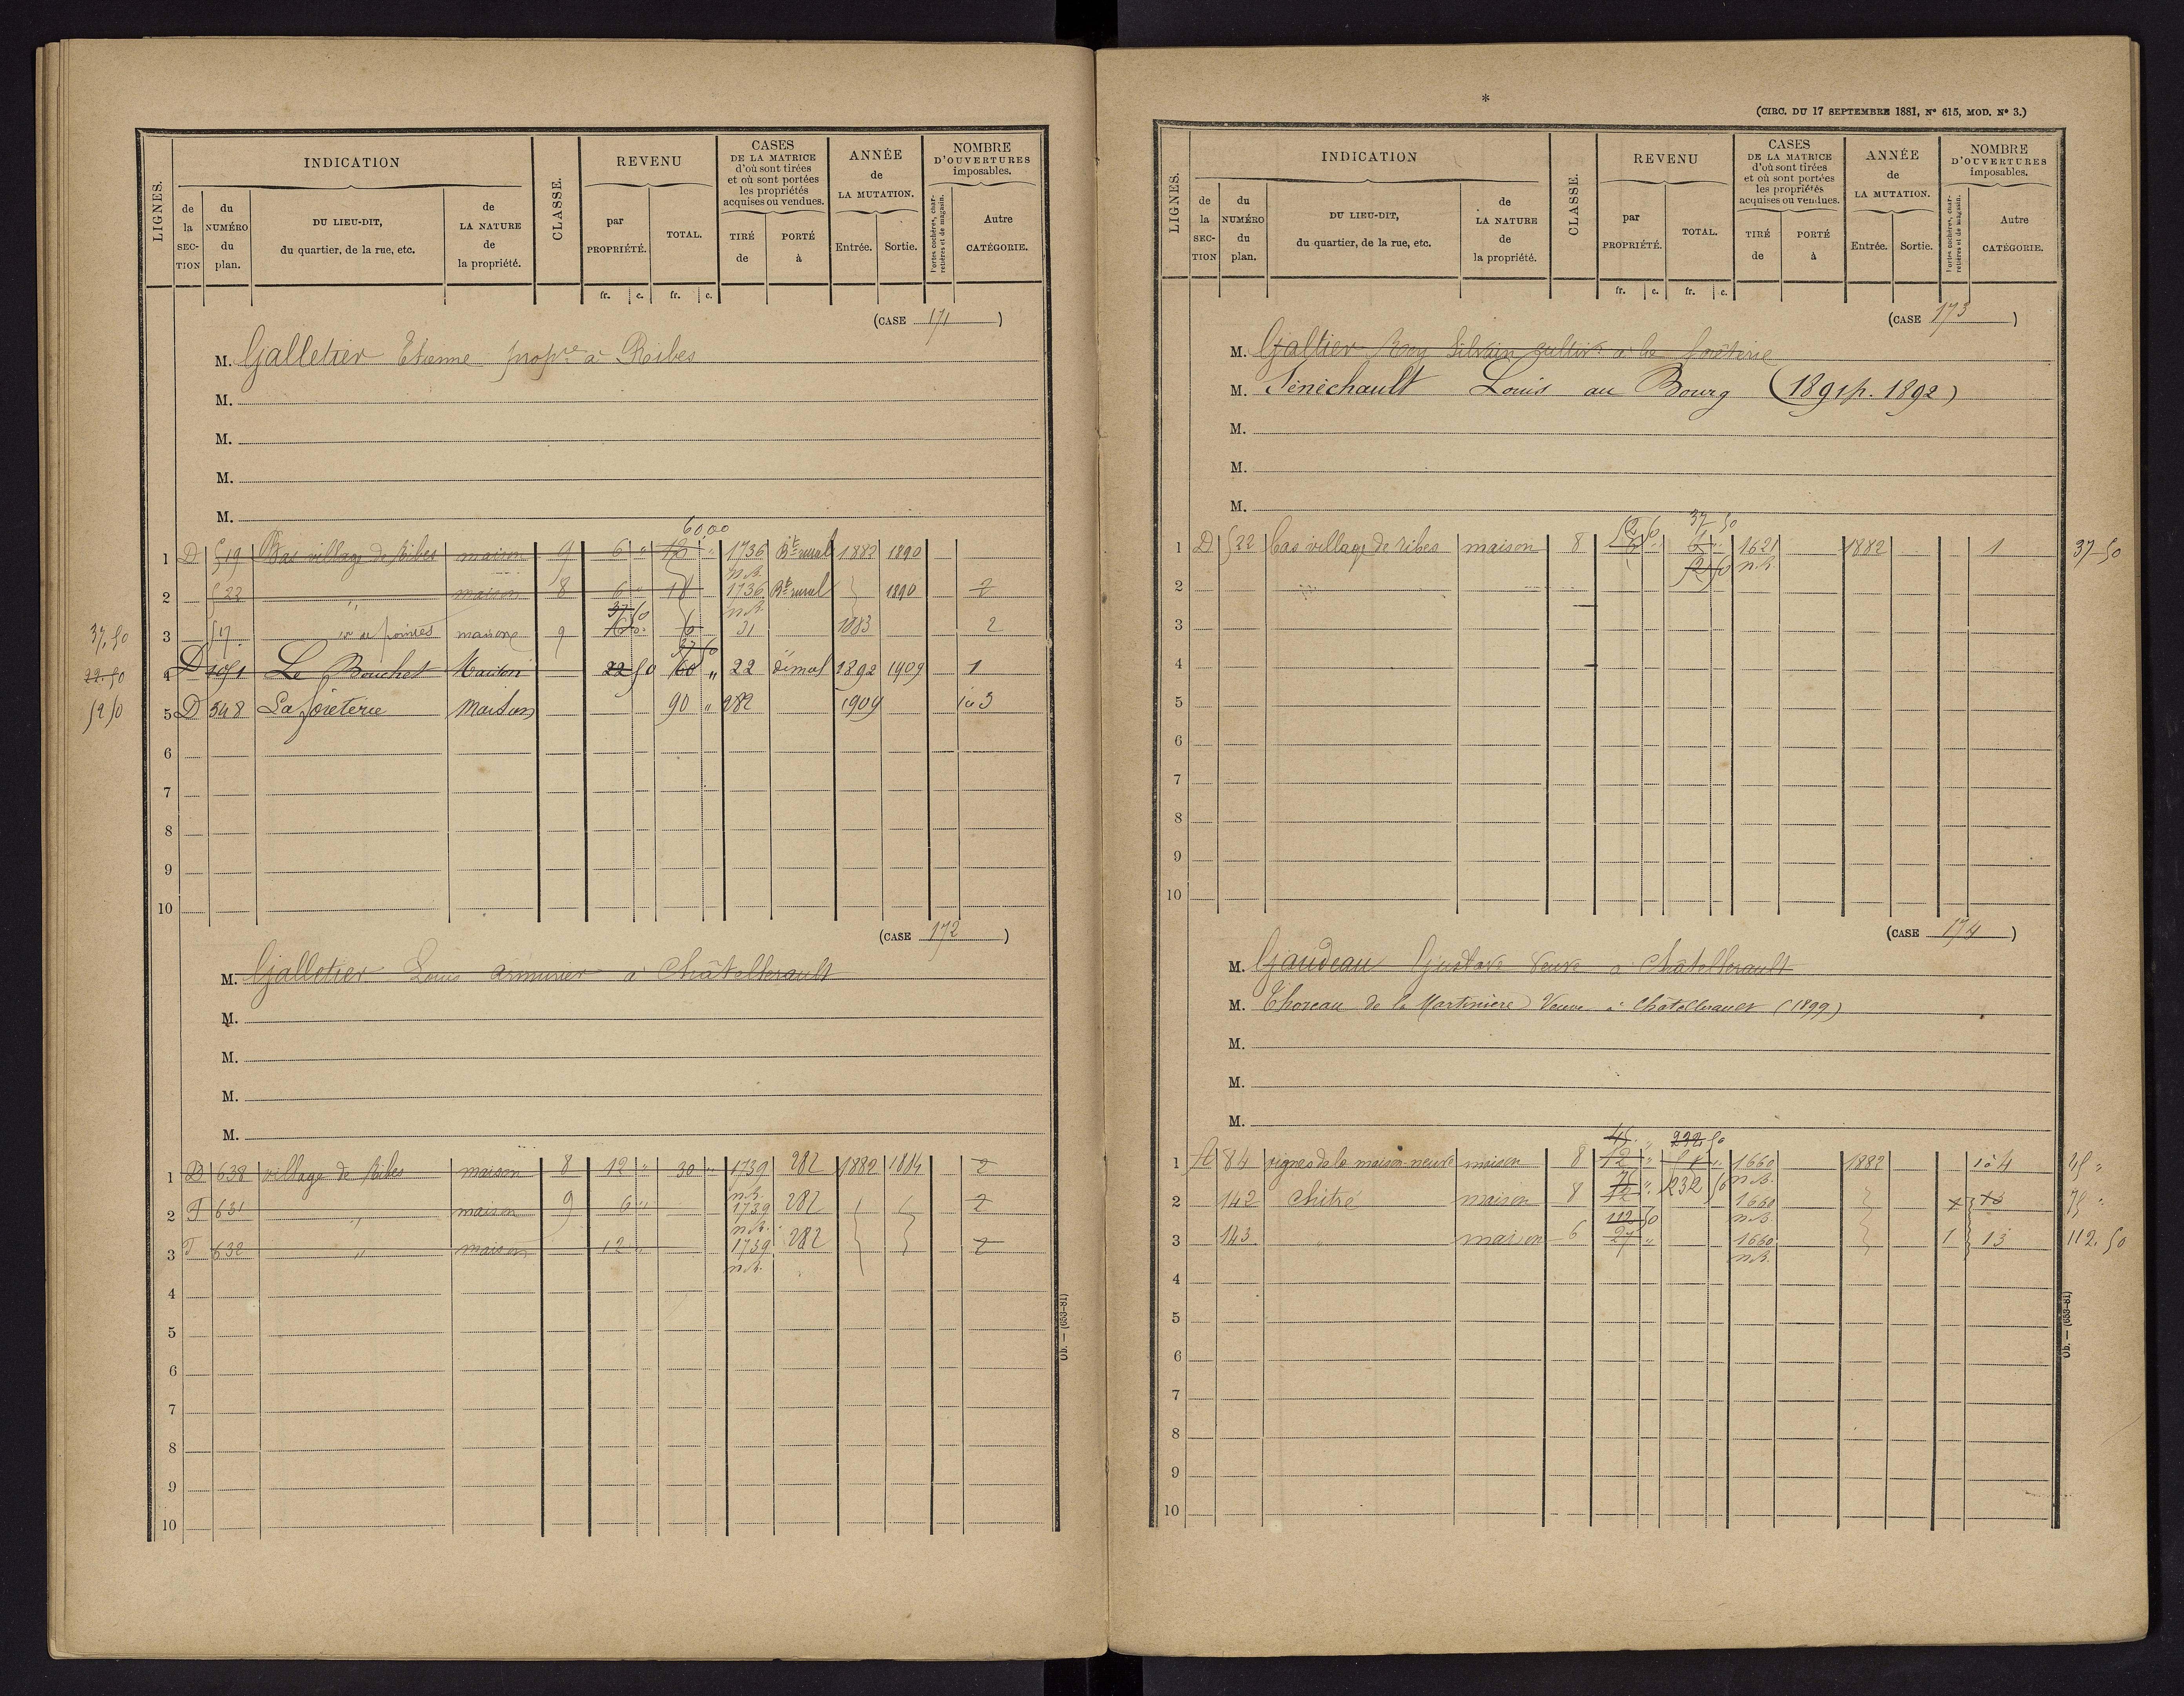 LIGNES.
INDICATION
de la SECTION
du NUMÉRO du plan.
DU LIEU-DIT, du quartier, de la rue, etc.
de LA NATURE de la propriété.
CLASSE.
REVENU
par PROPRIÉTÉ.
TOTAL.
CASES DE LA MATRICE d'où sont tirées et où sont portées les propriétés acquises ou vendues.
TIRÉ de
PORTÉ à
ANNÉE de LA MUTATION.
Entrée.
Sortie.
NOMBRE D'OUVERTURES imposables.
Portes cochères, charretières et de magasin.
Autre CATÉGORIE.
fr. c. fr. c.
(CASE 171)
M. Galletier Etienne prop.re à Ribes
M.
M.
M.
M.
60,00
1 D 519 Bas village de Ribes maison 9 6 " 18 " 1736 B.t rural 1882 1890
n.B.
2 522 " maison 8 6 " 18 1736 B.t rural 1890 2
37 50 n.B.
37,50 3 517 maison 9 6 31 1883 2
37 50
22.50 4 D 1051 Le Bouchet Maison 22 50 60 " 22 démol 1892 1909 1
52 50 5 D 548 La foreterie Maison 90 " 282 1909 1 à 3
6
7
8
9
10
(CASE 172)
M. Galletier Louis armurier à Châtellerault
M.
M.
M.
M.
1 D 638 village de Ribes maison 8 12 " 30 " 1739 282 1882 1884 2
n.B.
2 T 631 " maison 9 6 " 1739 282 2
n.B.
3 T 632 " maison 12 " 1739 282 2
n.B.
4
5
6
7
8
9
10
Ob. — (653-81)
*
(CIRC. DU 17 SEPTEMBRE 1881, N° 615, MOD. N° 3.)
LIGNES.
INDICATION
de la SECTION
du NUMÉRO du plan.
DU LIEU-DIT, du quartier, de la rue, etc.
de LA NATURE de la propriété.
CLASSE.
REVENU
par PROPRIÉTÉ.
TOTAL.
CASES DE LA MATRICE d'où sont tirées et où sont portées les propriétés acquises ou vendues.
TIRÉ de
PORTÉ à
ANNÉE de LA MUTATION.
Entrée.
Sortie.
NOMBRE D'OUVERTURES imposables.
Portes cochères, charretières et de magasin.
Autre CATÉGORIE.
fr. c. fr. c.
(CASE 173)
M. Galtier Roy Silvain cultiv.r à la foreterie
M. Sénéchault Louis au Bourg (1891 p. 1892)
M.
M.
M.
37 50
1 D 522 bas village de ribes maison 8 1621 1882 1 37 50
52 50 n.B.
2
3
4
5
6
7
8
9
10
(CASE 174)
M. Gaudeau Gustave Veuve à Châtellerault
M. Thoreau de la Martinière Veuve à Châtellerault (1899)
M.
M.
M.
45 " 232 50
1 H 84 vignes de la maison neuve maison 8 12 " 51 " 1660 1882 1 à 4 45 "
75 " 232 50 n.B.
2 142 Chitré maison 8 12 " 1660 75 "
112 50 n.B.
3 143 " maison 6 27 " 1660 1 13 112.50
n.B.
4
5
6
7
8
9
10
Ob. — (653-81)